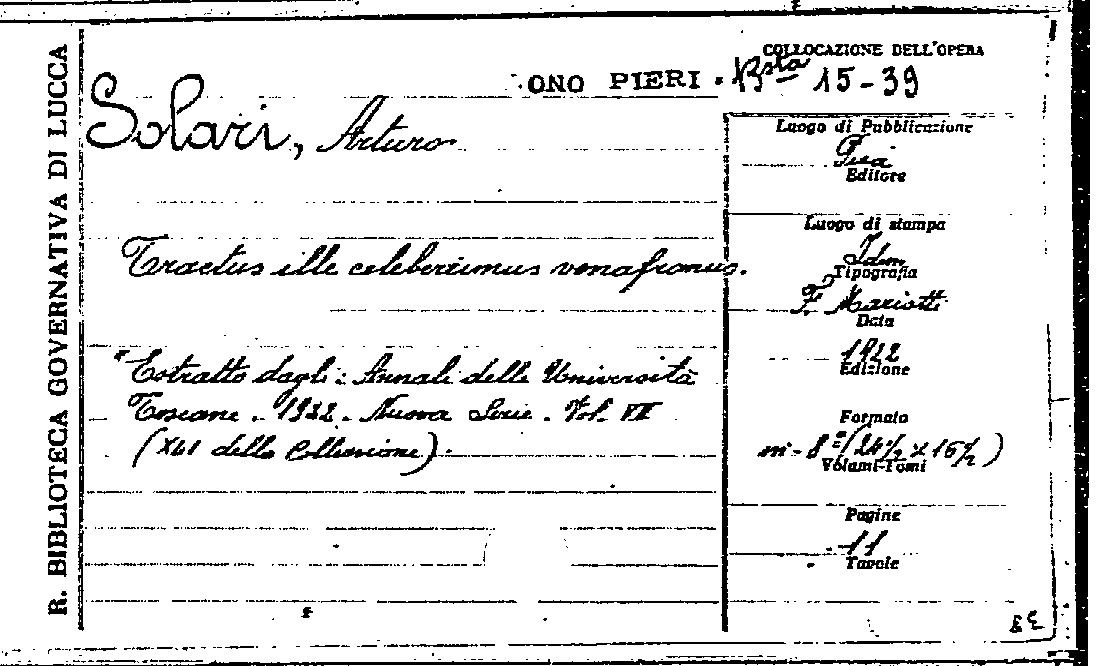 R. BIBLIOTECA GOVERNATIVA DI LUCCA
COLLOCAZIONE DELL'OPERA
ONO PIERI. Bsta 15-39
Solari, Arturo
Tractus ille celeberrimus venafranus.
"Estratto dagli: Annali delle Università
Toscane. 1922. Nuova Serie. Vol. VII
(XLI della Collezione).
Luogo di Pubblicazione
Pisa
Editore
Luogo di stampa
Idem
Tipografia
F. Mariotti
Data
1922
Edizione
Formato
in-8º (24½ x 16½)
Volumi-Tomi
Pagine
11
Tavole